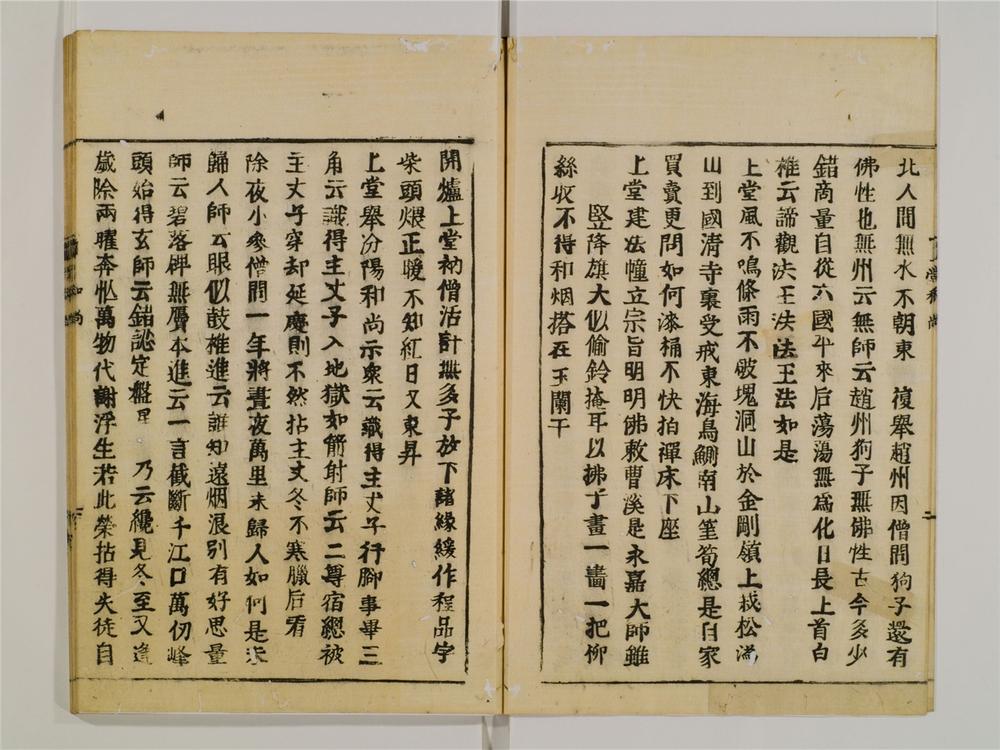 北人間無水不朝東　復舉趙州因僧問狗子還有
佛性也無州云無師云趙州狗子無佛性古今多少
錯商量自從六國平來后蕩蕩無為化日長上首白
椎云諦觀法王法法王法如是
上堂風不鳴條雨不破塊洞山於金剛嶺上栽松溈
山到國清寺裏受戒東海烏鰂南山筀筍總是自家
買賣更問如何漆桶不快拍禪床下座
上堂建法幢立宗旨明明佛敕曹溪是永嘉大師雖
竪降旗大似偷鈴掩耳以拂子畫一畫一把柳
絲收不得和烟搭在玉闌干
開爐上堂衲僧活計無多子放下諸緣緩作程品字
柴頭煨正暖不知紅日又東昇
上堂舉汾陽和尚示眾云識得主丈子行脚事畢三
角云識得主丈子入地獄如箭射師云二尊宿總被
主丈子穿却延慶則不然拈主丈冬不寒臘后看
除夜小參僧問一年將盡夜萬里未歸人如何是未
歸人師云眼似鼓椎進云誰知遠烟浪別有好思量
師云碧落碑無贗本進云一言截斷千江口萬仞峰
頭始得玄師云錯認定盤星　乃云纔見冬至又逢
歲除兩曜奔忙萬物代謝浮生若此榮拈得失徒自